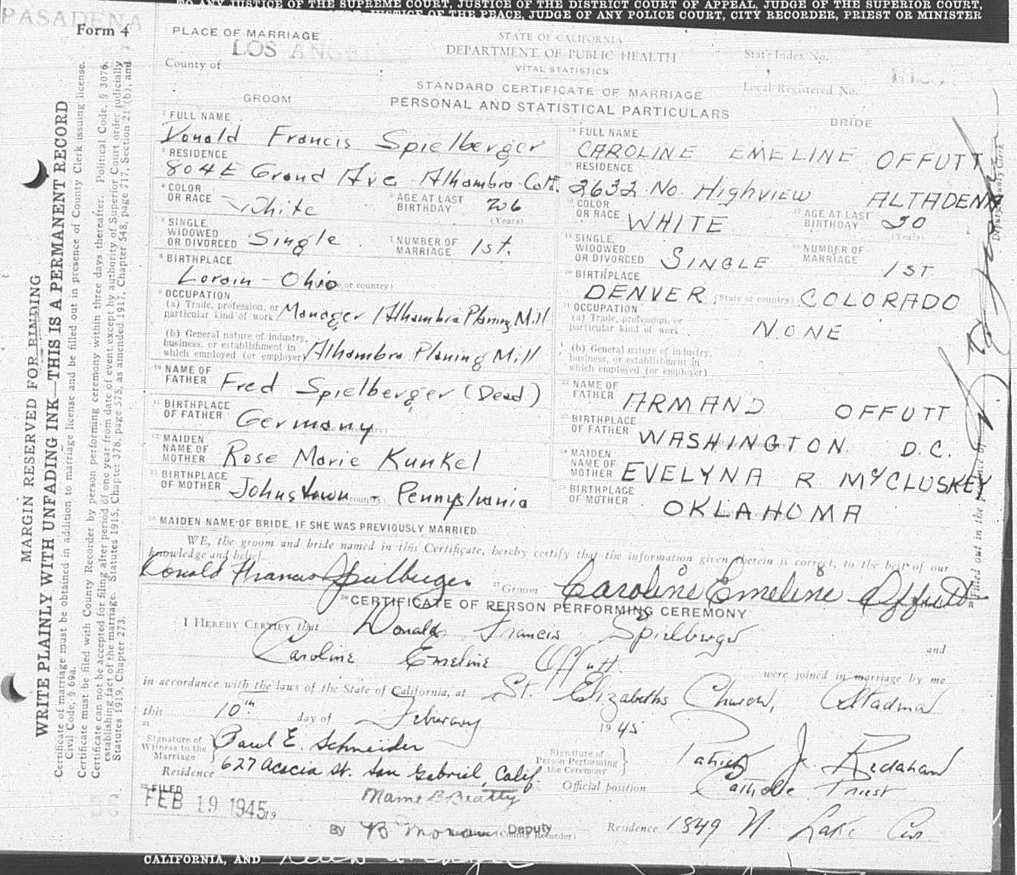 TO ANY JUSTICE OF THE SUPREME COURT, JUSTICE OF THE DISTRICT COURT OF APPEAL, JUDGE OF THE SUPERIOR COURT,
JUSTICE OF THE PEACE, JUDGE OF ANY POLICE COURT, CITY RECORDER, PRIEST OR MINISTER
PASADENA
Form 4
PLACE OF MARRIAGE
LOS ANGELES
County of
STATE OF CALIFORNIA
DEPARTMENT OF PUBLIC HEALTH
VITAL STATISTICS
STANDARD CERTIFICATE OF MARRIAGE
PERSONAL AND STATISTICAL PARTICULARS
State Index No.
Local Registered No.
GROOM
FULL NAME
Donald Francis Spielberger
RESIDENCE
804 E Grand Ave Alhambra Calif.
COLOR OR RACE White
AGE AT LAST BIRTHDAY 26 (Years)
SINGLE, WIDOWED OR DIVORCED Single
NUMBER OF MARRIAGE 1st.
BIRTHPLACE
Lorain - Ohio (State or country)
OCCUPATION
(a) Trade, profession, or particular kind of work Manager Alhambra Planing Mill
(b) General nature of industry, business, or establishment in which employed (or employer) Alhambra Planing Mill
NAME OF FATHER Fred Spielberger (Dead)
BIRTHPLACE OF FATHER Germany
MAIDEN NAME OF MOTHER Rose Marie Kunkel
BIRTHPLACE OF MOTHER Johnstown - Pennsylvania
BRIDE
FULL NAME
CAROLINE EMELINE OFFUTT
RESIDENCE
2632 No. HIGHVIEW ALTADENA
COLOR OR RACE WHITE
AGE AT LAST BIRTHDAY 20 (Years)
SINGLE, WIDOWED OR DIVORCED SINGLE
NUMBER OF MARRIAGE 1ST
BIRTHPLACE
DENVER (State or country) COLORADO
OCCUPATION
(a) Trade, profession, or particular kind of work NONE
(b) General nature of industry, business, or establishment in which employed (or employer)
NAME OF FATHER ARMAND OFFUTT
BIRTHPLACE OF FATHER WASHINGTON D.C.
MAIDEN NAME OF MOTHER EVELYNA R McCLUSKEY
BIRTHPLACE OF MOTHER OKLAHOMA
MAIDEN NAME OF BRIDE, IF SHE WAS PREVIOUSLY MARRIED
WE, the groom and bride named in this Certificate, hereby certify that the information given therein is correct, to the best of our
knowledge and belief.
Donald Francis Spielberger Groom Caroline Emeline Offutt
CERTIFICATE OF PERSON PERFORMING CEREMONY
I HEREBY CERTIFY that Donald Francis Spielberger and
Caroline Emeline Offutt were joined in marriage by me
in accordance with the laws of the State of California, at St. Elizabeths Church, Altadena
this 10th day of February 1945
Signature of Witness to the Marriage Paul E. Schneider
Residence 627 Acacia St. San Gabriel, Calif.
Signature of Person Performing the Ceremony Patrick J.
Official position Catholic Priest
FILED
FEB 19 1945 19
Mame B Beatty
By Deputy
(County Recorder)
Residence 1849 N. Lake Ave
CALIFORNIA, AND
MARGIN RESERVED FOR BINDING
WRITE PLAINLY WITH UNFADING INK—THIS IS A PERMANENT RECORD
Certificate of marriage must be obtained in addition to marriage license and be filled out in presence of County Clerk issuing license.
Civil Code, § 69a.
Certificate must be filed with County Recorder by person performing ceremony within three days thereafter. Political Code, § 3076.
Certificate can not be accepted for filing after period of one year from date of event except by authority of Superior Court order judicially
establishing fact of the marriage. Statutes 1915, Chapter 378, page 575, as amended 1917, Chapter 548, page 717, Section 21 (b), and
Statutes 1919, Chapter 273.
Filled out in the presence of
Deputy County Clerk